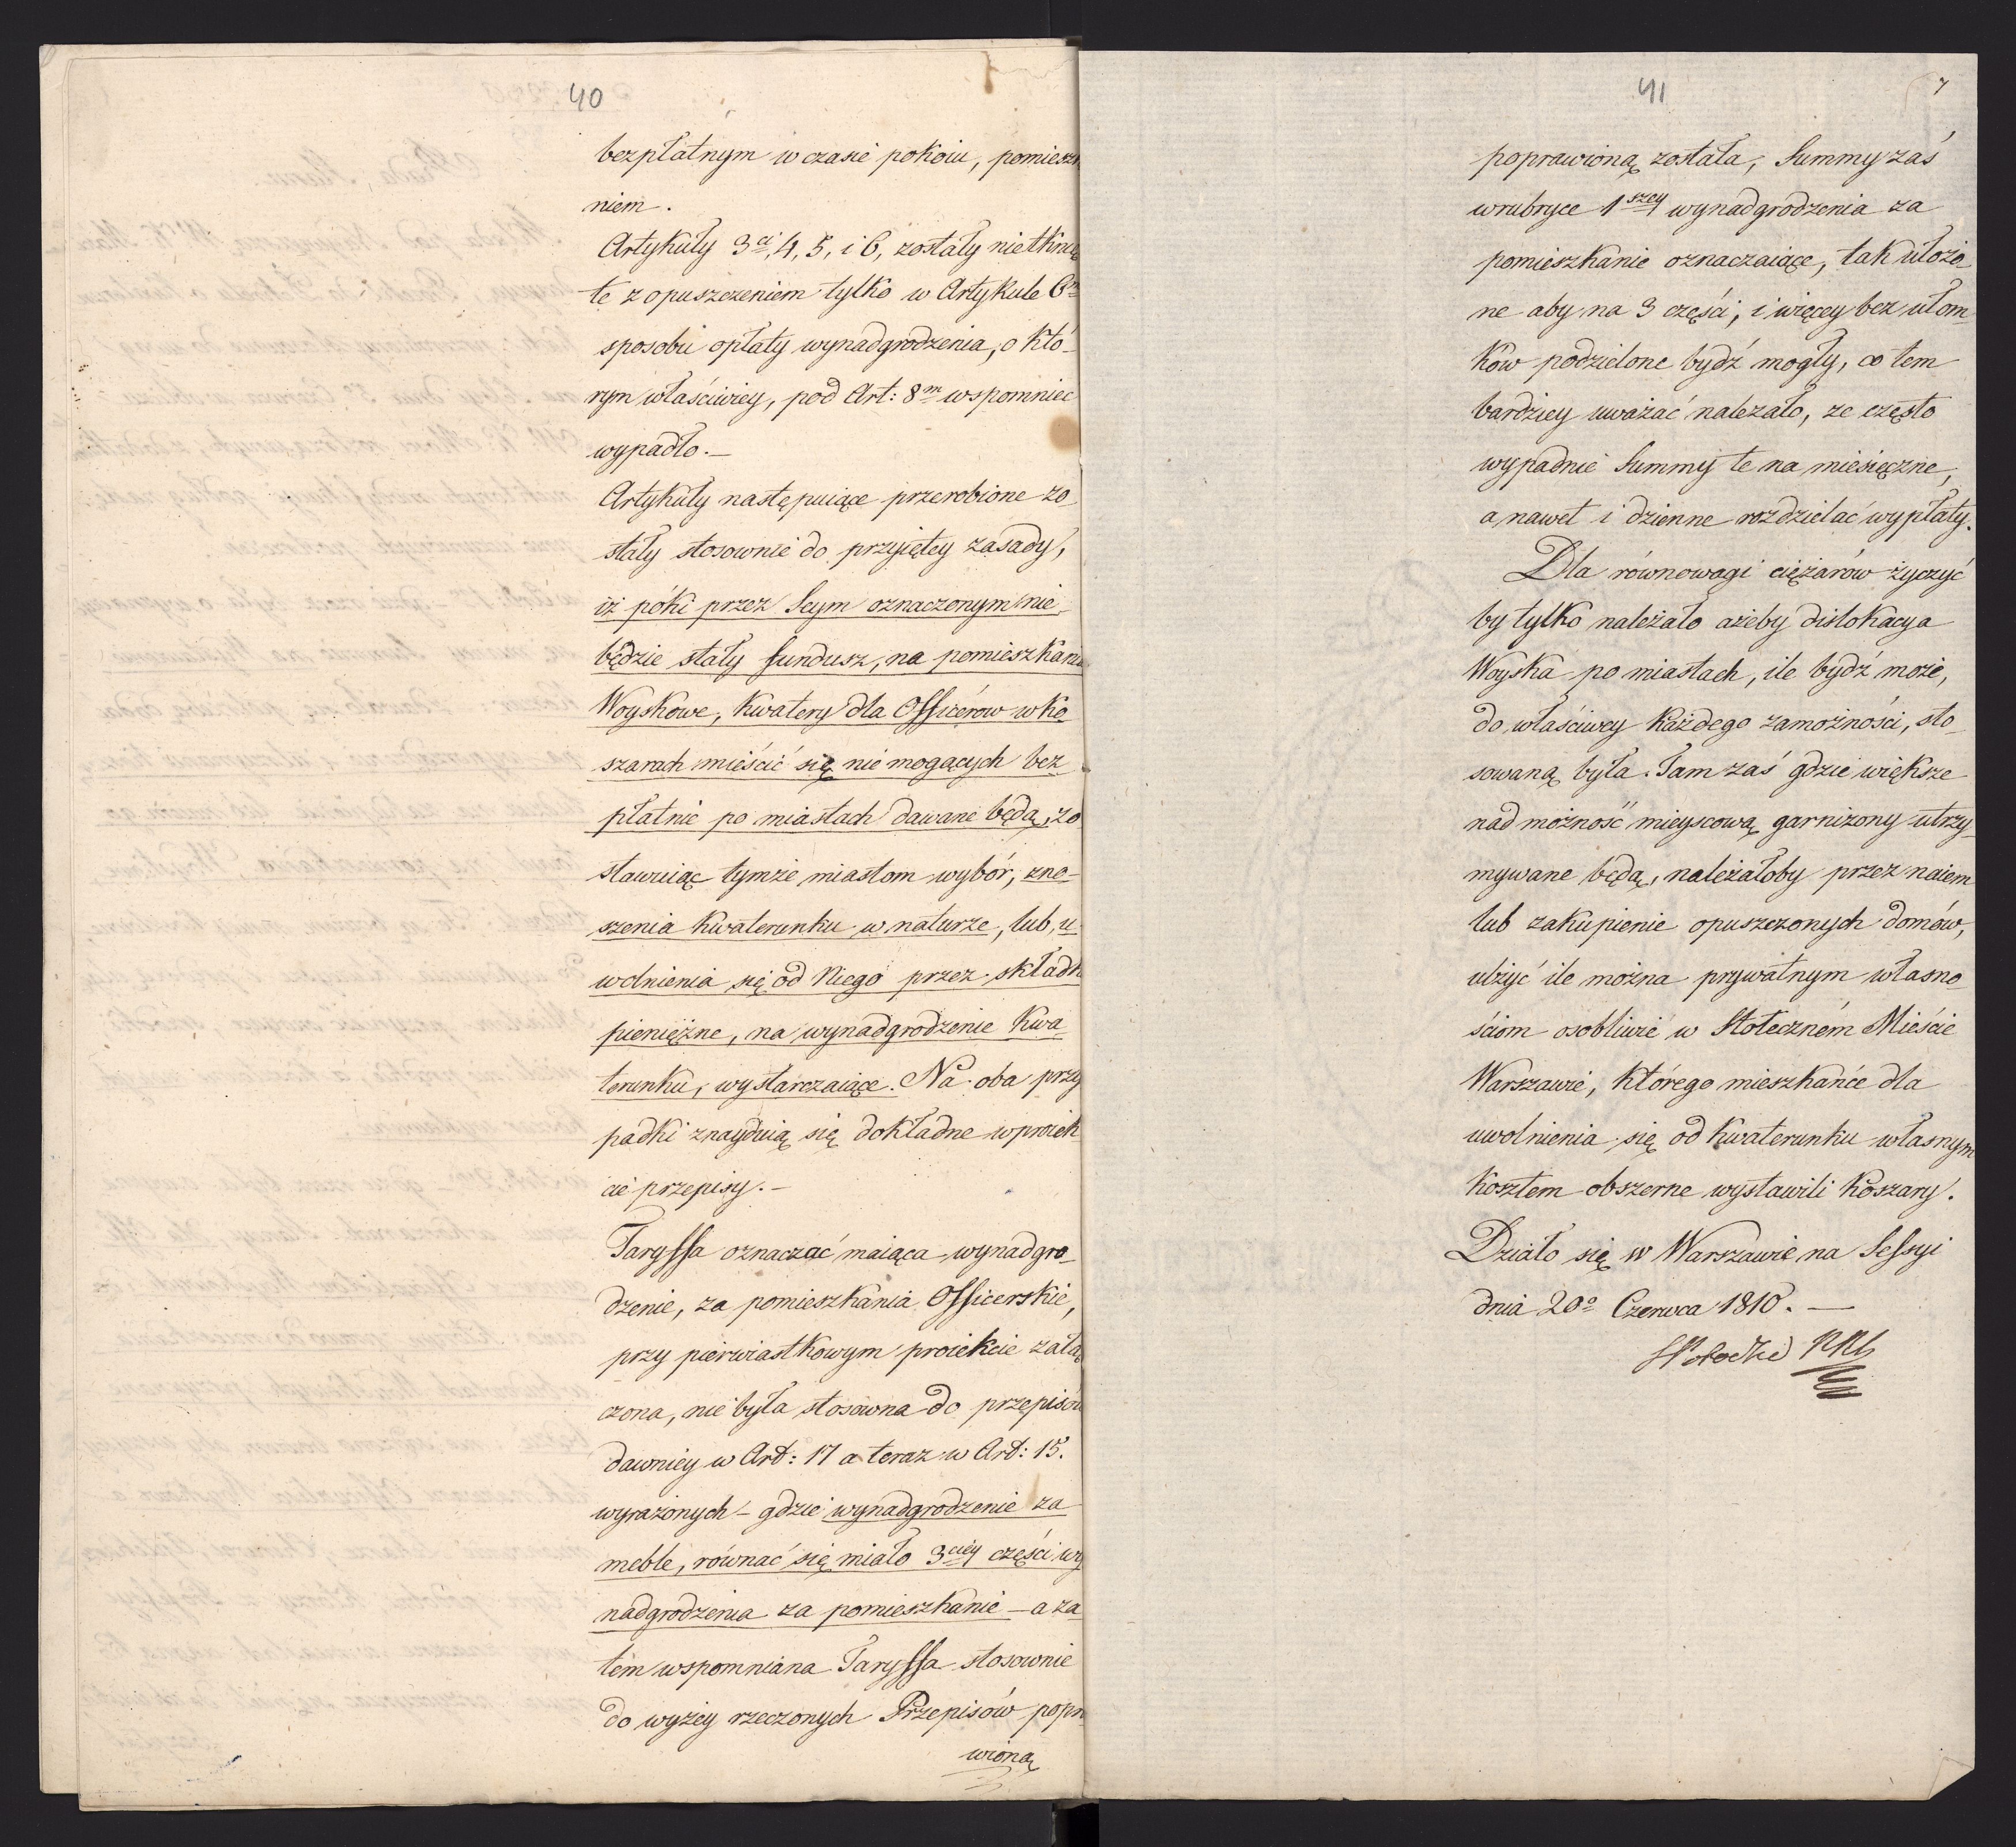 40
bezpłatnym w czasie pokoiu, pomieszk
niem.
Artykuły 3ci, 4, 5, i 6, zostały nietknię
te z opuszczeniem tylko w Artykule 6m
sposobu opłaty wynadgrodzenia, o któ-
rym właściwiey, pod Art: 8m wspomnieć
wypadło.—
Artykuły następuiące przerobione zo
stały stosownie do przyiętey zasady,
iż póki przez Seym oznaczonym nie
będzie stały fundusz, na pomieszkania
Woyskowe, Kwatery dla Officerów w ko
szarach mieścić się nie mogących bez
płatnie po miastach dawane będą, zo
stawuiąc tymże miastom wybór, zno-
szenia Kwaterunku w naturze, lub, u
wolnienia się od Niego przez składk
pieniężne, na wynadgrodzenie Kwa
terunku, wystarczaiące. Na oba przy
padki znayduią się dokładne w proiek
cie przepisy.—
Taryffa oznaczać maiąca wynadgro-
dzenie, za pomieszkania Officerskie,
przy pierwiastkowym proiekcie załą
czona, nie była stosowna do przepisów
dawniey w Art: 17 a teraz w Art: 15.
wyrażonych – gdzie wynadgrodzenie za
meble, równać się miało 3ciey części wy
nadgrodzenia za pomieszkanie – a za
tem wspomniana Taryffa stosownie
do wyżey rzeczonych Przepisów popra
wioną
41
7
poprawioną została, Summy zaś
w rubryce 1szey wynadgrodzenia za
pomieszkanie oznaczaiące, tak ułożo-
ne aby na 3 części, i więcey bez ułom-
ków podzielone bydź mogły, co tem
bardziey uważać należało, że często
wypadnie Summy te na miesięczne,
a nawet i dzienne rozdzielać wypłaty.
Dla równowagi ciężarów życzyć
by tylko należało ażeby dislokacya
Woyska po miastach, ile bydź może,
do właściwey każdego zamożności, sto-
sowaną była. Tam zaś gdzie większe
nad możność mieyscową garnizony utrzy-
mywane będą, należałoby przez naiem
lub zakupienie opuszczonych domów,
ulżyć ile można prywatnym własno-
ściom osobliwie w Stołecznem Mieście
Warszawie, którego mieszkańce dla
uwolnienia się od Kwaterunku własnym
kosztem obszerne wystawili koszary.
Działo się w Warszawie na Sessyi
dnia 20o Czerwca 1810.—